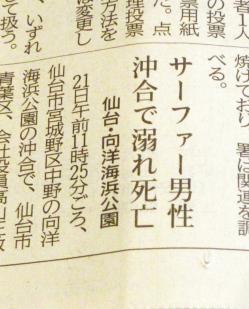 焼けており、署は関連を調
べる。
サーファー男性
沖合で溺れ死亡
仙台・向洋海浜公園
21日午前11時25分ごろ、
仙台市宮城野区中野の向洋
海浜公園の沖合で、仙台市
青葉区、会社役員高山
者人
の投票
票用紙
た。点
理投票
方法を
は変更し
、いずれ
て扱う。